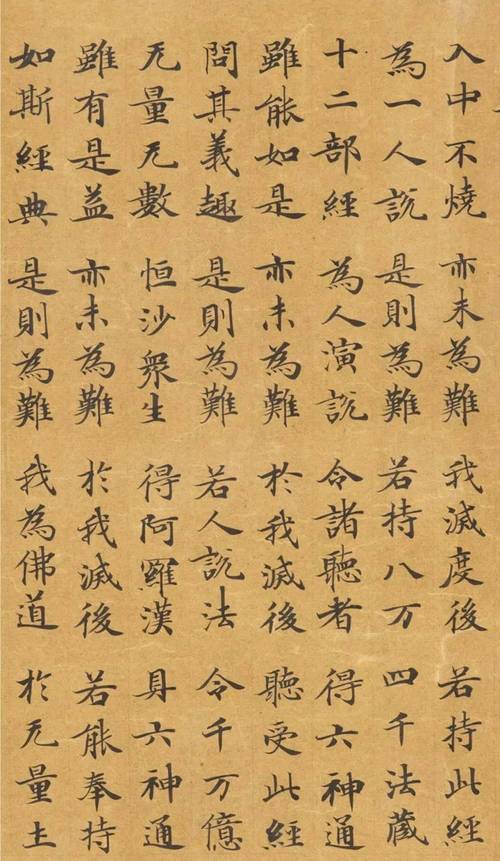 入中不燒 亦未為難 我滅度後 若持此經
為一人說 是則為難 若持八万 四千法藏
十二部經 為人演說 令諸聽者 得六神通
雖能如是 亦未為難 於我滅後 聽受此經
問其義趣 是則為難 若人說法 令千万億
无量无數 恒沙眾生 得阿羅漢 具六神通
雖有是益 亦未為難 於我滅後 若能奉持
如斯經典 是則為難 我為佛道 於无量土